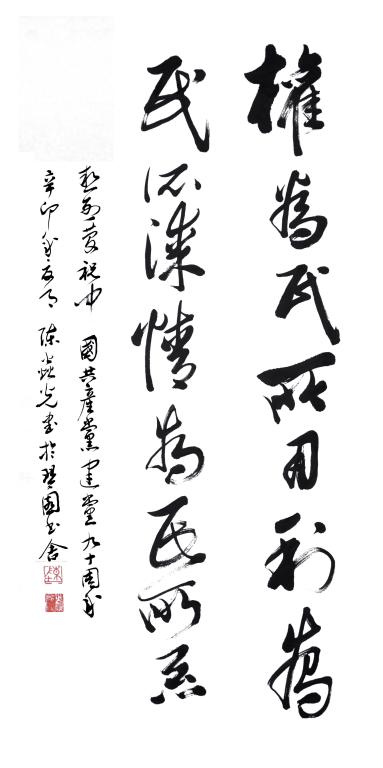 權為民所用利為
民所謀情為民所系
熱烈慶祝中國共產黨建黨九十周年
辛卯年 陳焱光書於 園書舍